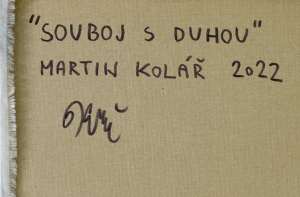 "SOUBOJ S DUHOU"
MARTIN KOLÁŘ 2022